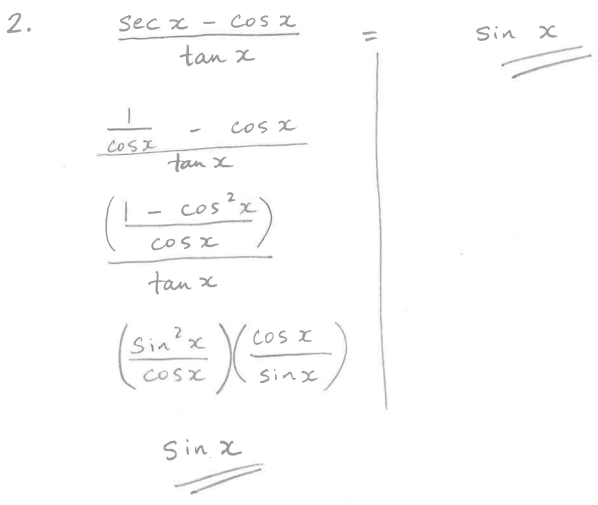 2. (sec x - cos x) / (tan x) = sin x
(1/(cos x) - cos x) / (tan x)
((1 - cos²x)/(cos x)) / (tan x)
((sin²x)/(cos x)) ((cos x)/(sin x))
sin x